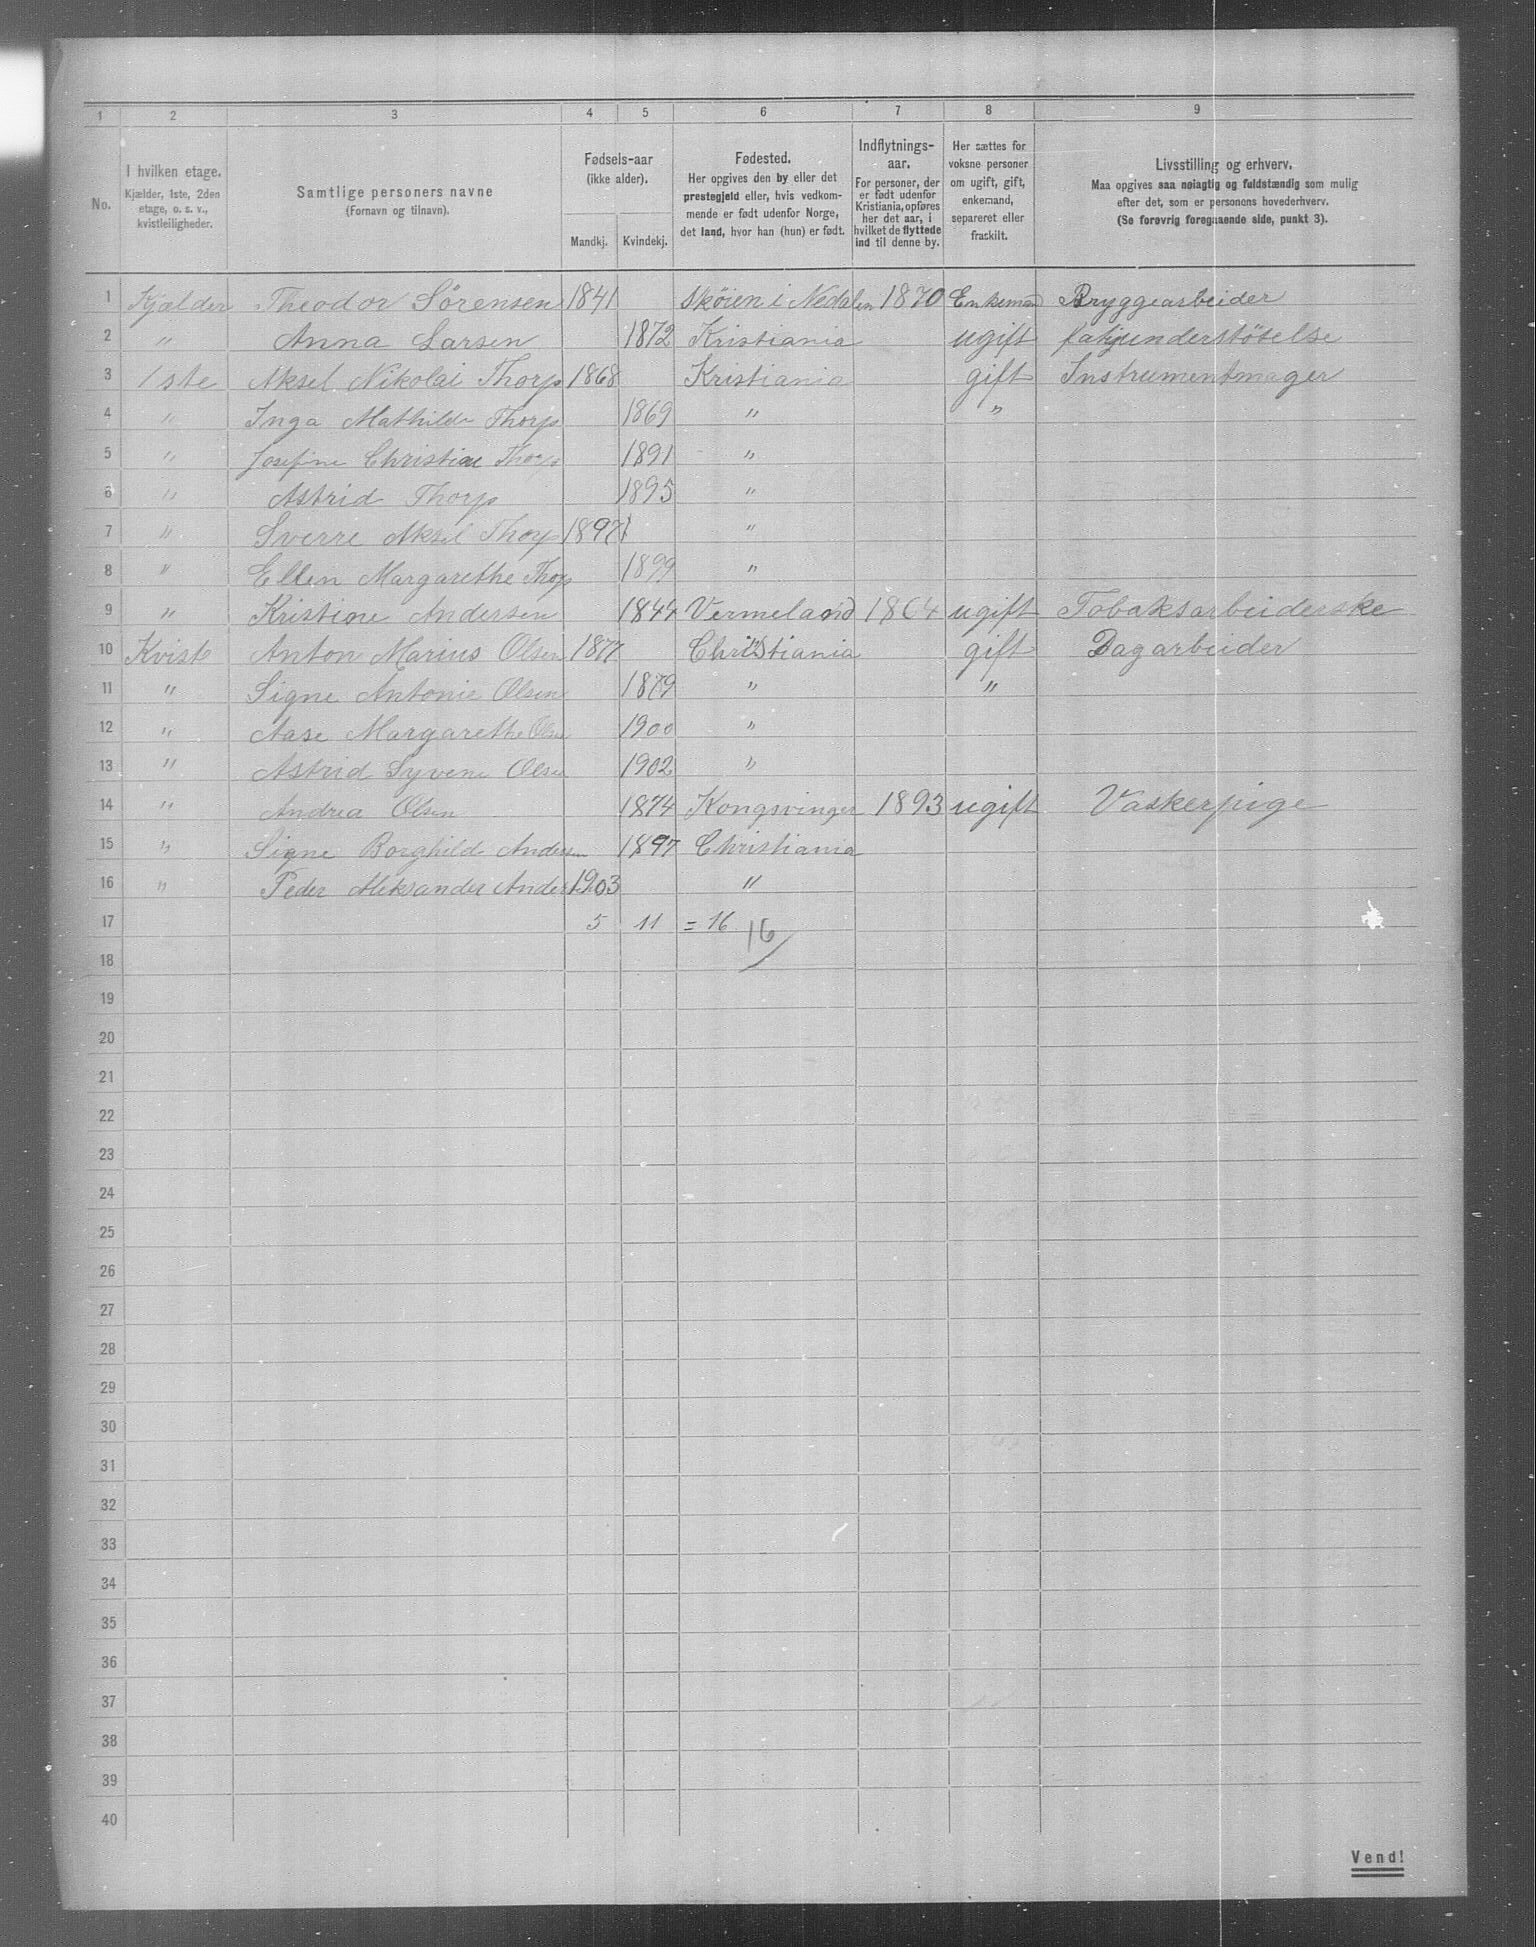 1 2 3 4 5 6 7 8 9
No.
I hvilken etage.
Kjælder, 1ste, 2den
etage, o. s. v.,
kvistleiligheder.
Samtlige personers navne
(Fornavn og tilnavn).
Fødsels-aar
(ikke alder).
Mandkj. Kvindekj.
Fødested.
Her opgives den by eller det
prestegjeld eller, hvis vedkom-
mende er født udenfor Norge,
det land, hvor han (hun) er født.
Indflytnings-
aar.
For personer, der
er født udenfor
Kristiania, opføres
her det aar, i
hvilket de flyttede
ind til denne by.
Her sættes for
voksne personer
om ugift, gift,
enkemand,
separeret eller
fraskilt.
Livsstilling og erhverv.
Maa opgives saa nøiagtig og fuldstændig som mulig
efter det, som er personens hovederhverv.
(Se forøvrig foregaaende side, punkt 3).
1 Kjælder Theodor Sørensen 1841 Skøien i Nedalen 1870 Enkemand Bryggearbeider
2 " Anna Larsen 1872 Kristiania ugift
3 1ste Aksel Nikolai Thorp 1868 Kristiania gift Instrumentmager
4 " Inga Mathilde Thorp 1869 " "
5 " Josefine Christine Thorp 1891 "
6 " Astrid Thorp 1895 "
7 " Sverre Aksel Thorp 1897 "
8 " Ellen Margarethe Thorp 1899 "
9 " Kristine Andersen 1844 Vermeland 1864 ugift Tobaksarbeiderske
10 Kvist Anton Marius Olsen 1877 Christiania gift Dagarbeider
11 " Signe Antonie Olsen 1879 " "
12 " Aase Margarethe Olsen 1900 "
13 " Astrid Syvene Olsen 1902 "
14 " Andrea Olsen 1874 Kongsvinger 1893 ugift Vaskerpige
15 " Signe Borghild Andersen 1897 Christiania
16 " Peder Aleksander Anders 1903 "
17 5 11 = 16 16
18
19
20
21
22
23
24
25
26
27
28
29
30
31
32
33
34
35
36
37
38
39
40
Vend!